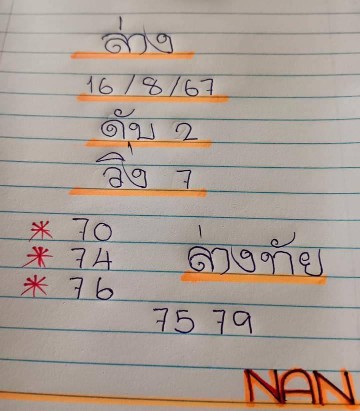 ล่าง
16/8/67
ดับ 2
วิ่ง 7
* 70
* 74
* 76
ล่างทัย
75 79
NAN